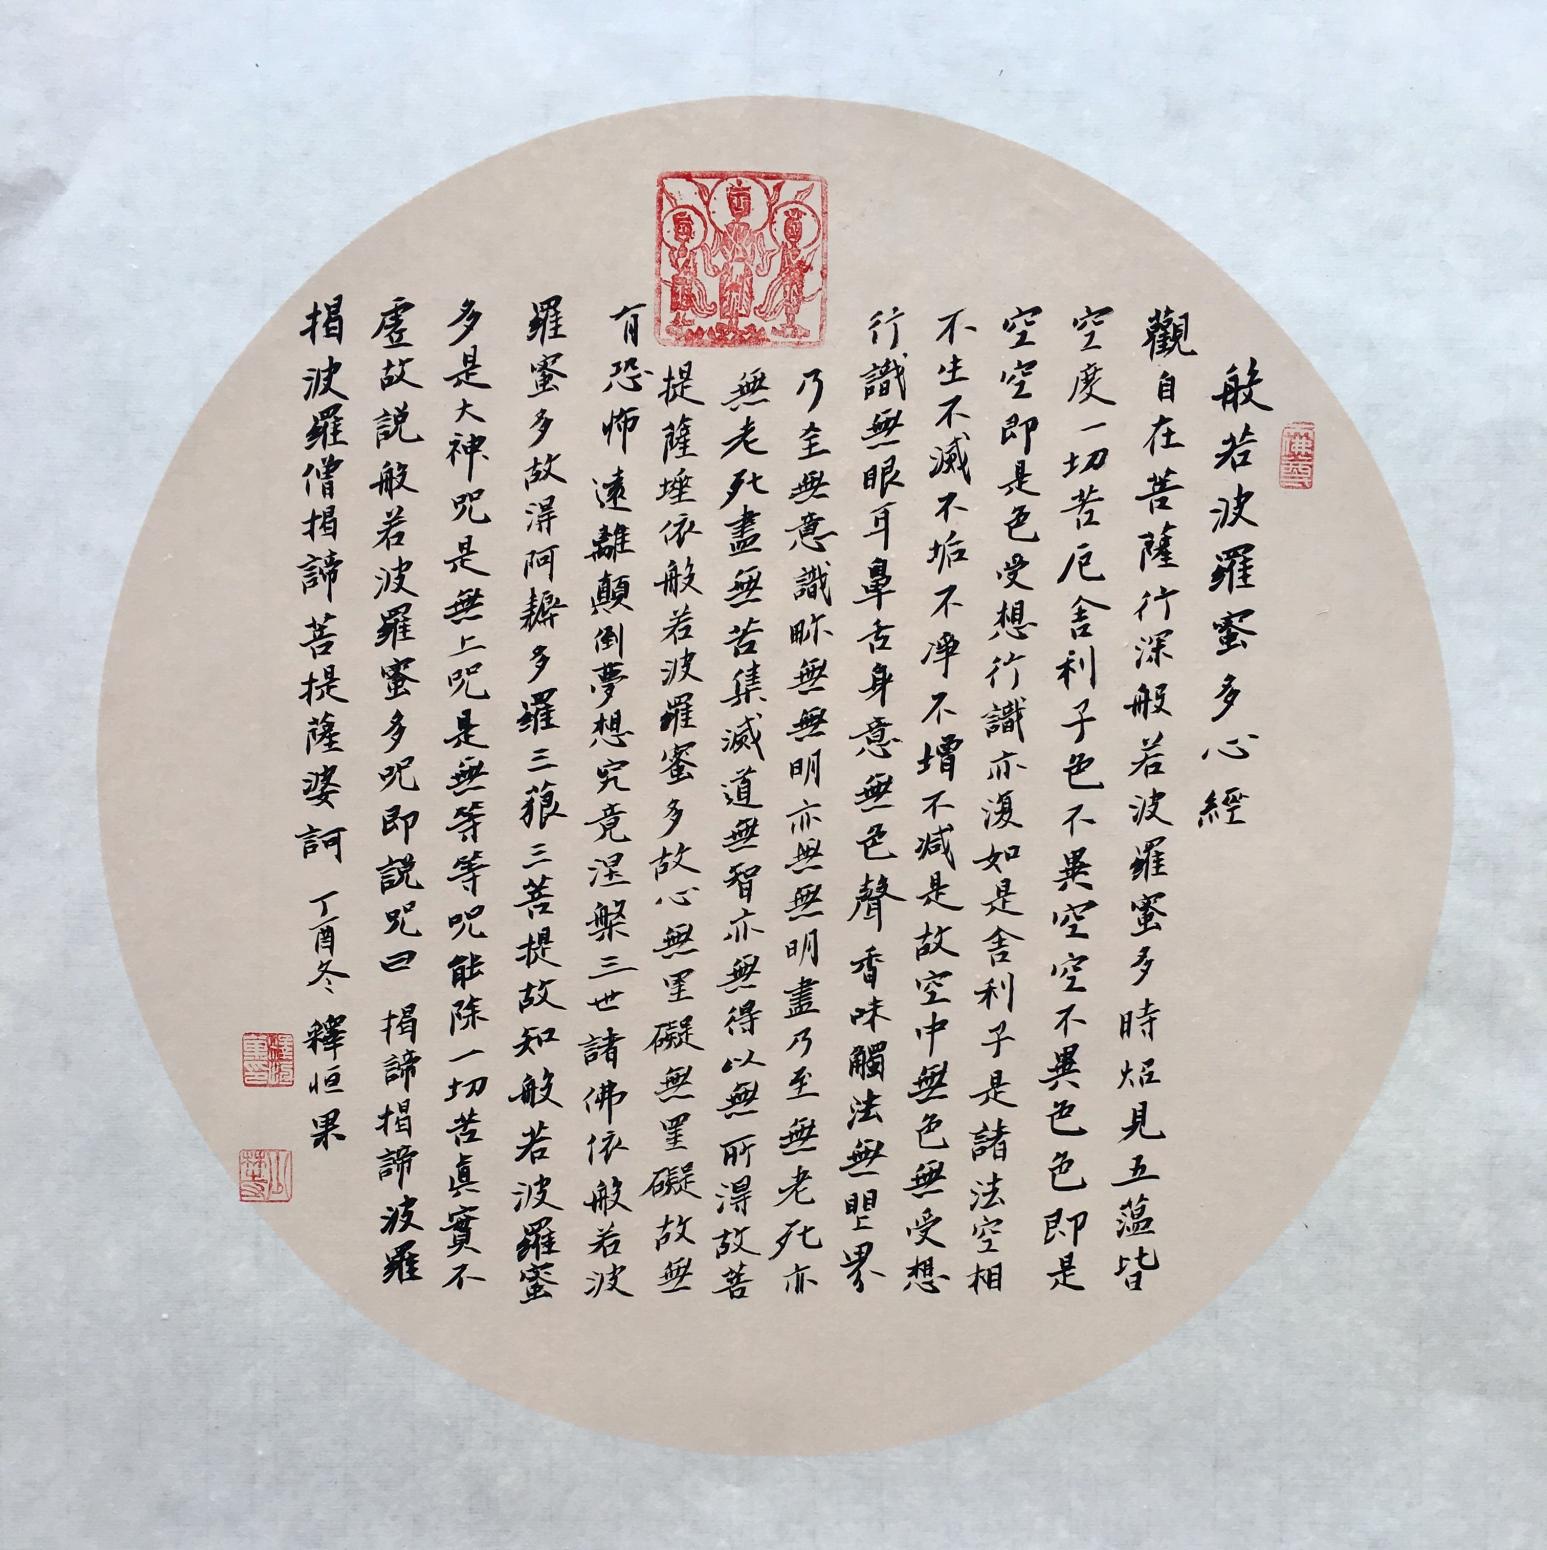 般若波羅蜜多心經
觀自在菩薩行深般若波羅蜜多時炤見五蕰皆
空度一切苦厄舍利子色不異空空不異色色即是
空空即是色受想行識亦復如是舍利子是諸法空相
不生不滅不垢不凈不增不減是故空中無色無受想
行識無眼耳鼻舌身意無色聲香味觸法無眼界
乃至無意識界無無明亦無無明盡乃至無老死亦
無老死盡無苦集滅道無智亦無得以無所得故菩
提薩埵依般若波羅蜜多故心無罣礙無罣礙故無
有恐怖遠離顛倒夢想究竟涅槃三世諸佛依般若波
羅蜜多故得阿耨多羅三藐三菩提故知般若波羅蜜
多是大神咒是無上咒是無等等咒能除一切苦真實不
虛故說般若波羅蜜多咒即說咒曰 揭諦揭諦波羅
揭波羅僧揭諦菩提薩婆訶 丁酉冬 釋恒果